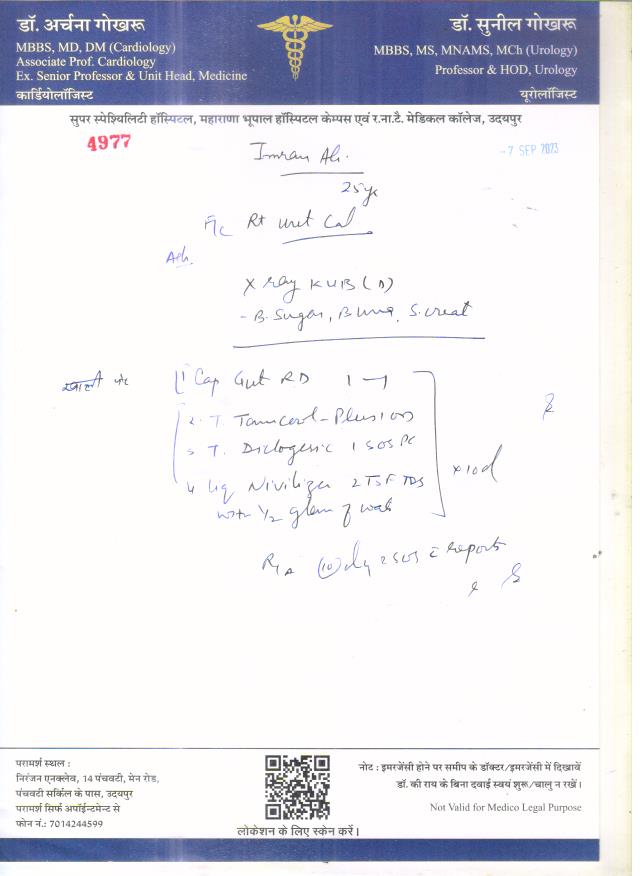 डॉ. अर्चना गोखरू
MBBS, MD, DM (Cardiology)
Associate Prof. Cardiology
Ex. Senior Professor & Unit Head, Medicine
कार्डियोलॉजिस्ट
डॉ. सुनील गोखरू
MBBS, MS, MNAMS, MCh (Urology)
Professor & HOD, Urology
यूरोलॉजिस्ट
सुपर स्पेश्यिलिटी हॉस्पिटल, महाराणा भूपाल हॉस्पिटल केम्पस एवं र.ना.टै. मेडिकल कॉलेज, उदयपुर
4977
-7 SEP 2023
Imran Ali.
25 yr
Rt Uret Cal
X ray KUB (D)
- B. Sugar, B urea, S. creat
1 Cap Gut RD 1 - 1
2. T. Tamcool-Plus 1 OD
3 T. Diclogesic 1 SOS PC
4 Liq Nivilizer 2 TSF TDS
with 1/2 glass of wat
x 10d
10 day 2 SOS c Reports
परामर्श स्थल :
निरंजन एनक्लेव, 14 पंचवटी, मेन रोड,
पंचवटी सर्किल के पास, उदयपुर
परामर्श सिर्फ अपॉईन्टमेन्ट से
फोन नं.: 7014244599
लोकेशन के लिए स्केन करें।
नोट : इमरजेंसी होने पर समीप के डॉक्टर/इमरजेंसी में दिखावें
डॉ. की राय के बिना दवाई स्वयं शुरू/चालु न रखें।
Not Valid for Medico Legal Purpose